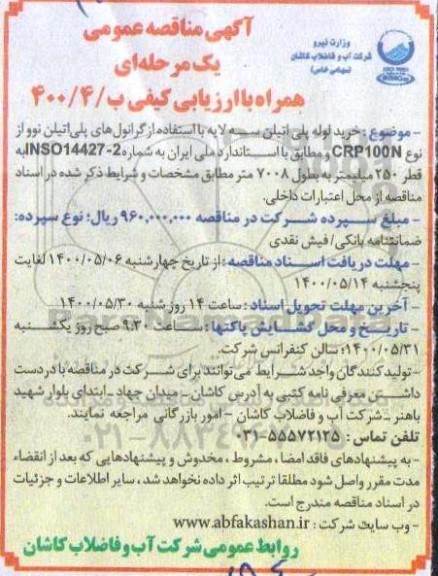 آگهی مناقصه عمومی
یک مرحله‌ای
همراه با ارزیابی کیفی ب/۴۰۰/۴
وزارت نیرو
شرکت آب و فاضلاب کاشان
(سهامی خاص)
- موضوع : خرید لوله پلی اتیلن سه لایه با استفاده از گرانول‌های پلی‌اتیلن نو و از
نوع CRP100N و مطابق با استاندارد ملی ایران به شماره INSO14427-2 به
قطر ۲۵۰ میلیمتر به طول ۷۰۰۸ متر مطابق مشخصات و شرایط ذکر شده در اسناد
مناقصه از محل اعتبارات داخلی.
- مبلغ سپرده شرکت در مناقصه ۹۶۰,۰۰۰,۰۰۰ ریال؛ نوع سپرده:
ضمانتنامه بانکی/ فیش نقدی
- مهلت دریافت اسناد مناقصه : از تاریخ چهارشنبه ۱۴۰۰/۰۵/۰۶ لغایت
پنجشنبه ۱۴۰۰/۰۵/۱۴
- آخرین مهلت تحویل اسناد : ساعت ۱۴ روز شنبه ۱۴۰۰/۰۵/۳۰
- تاریخ و محل گشایش پاکتها : ساعت ۹.۳۰ صبح روز یکشنبه
۱۴۰۰/۰۵/۳۱؛ سالن کنفرانس شرکت.
- تولید کنندگان واجد شرایط می توانند برای شرکت در مناقصه با در دست
داشتن معرفی نامه کتبی به آدرس کاشان - میدان جهاد - ابتدای بلوار شهید
باهنر - شرکت آب و فاضلاب کاشان - امور بازرگانی مراجعه نمایند.
تلفن تماس : ۵۵۵۷۲۱۲۵-۰۳۱
- به پیشنهادهای فاقد امضا ، مشروط ، مخدوش و پیشنهادهایی که بعد از انقضاء
مدت مقرر واصل شود مطلقا ترتیب اثر داده نخواهد شد ، سایر اطلاعات و جزئیات
در اسناد مناقصه مندرج است.
- وب سایت شرکت : www.abfakashan.ir
روابط عمومی شرکت آب و فاضلاب کاشان